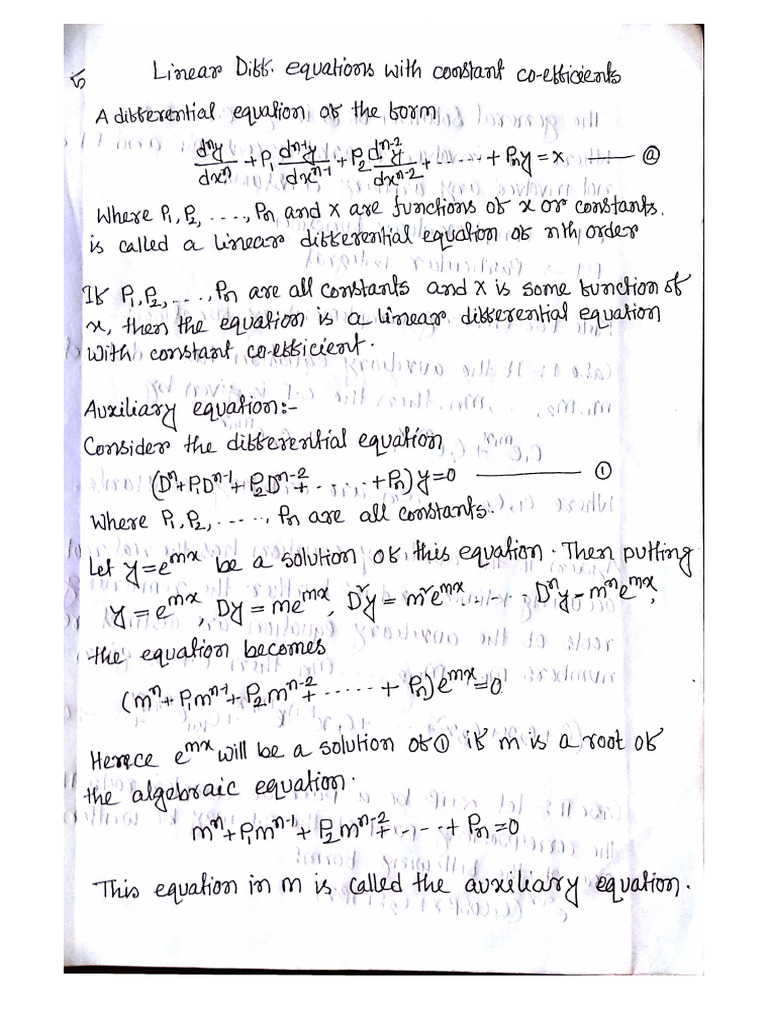 5
Linear Diff. equations with constant co-efficients
A differential equation of the form
dⁿy/dxⁿ + P₁ dⁿ⁻¹y/dxⁿ⁻¹ + P₂ dⁿ⁻²y/dxⁿ⁻² + ...... + Pₙy = x —— ⓐ
Where P₁, P₂, ....., Pₙ and X are functions of x or constants.
is called a linear differential equation of nth order
If P₁, P₂, ...., Pₙ are all constants and X is some function of
x, then the equation is a linear differential equation
with constant co-efficient.
Auxiliary equation:-
Consider the differential equation
(Dⁿ + P₁Dⁿ⁻¹ + P₂Dⁿ⁻² + ...... + Pₙ) y = 0 —— ①
Where P₁, P₂, ......, Pₙ are all constants.
Let y = eᵐˣ be a solution of this equation. Then putting
y = eᵐˣ, Dy = meᵐˣ, D²y = m²eᵐˣ ...... Dⁿy = mⁿeᵐˣ,
the equation becomes
(mⁿ + P₁mⁿ⁻¹ + P₂mⁿ⁻² + ...... + Pₙ) eᵐˣ = 0
Hence eᵐˣ will be a solution of ① if m is a root of
the algebraic equation.
mⁿ + P₁mⁿ⁻¹ + P₂mⁿ⁻² + ..... + Pₙ = 0
This equation in m is called the auxiliary equation.